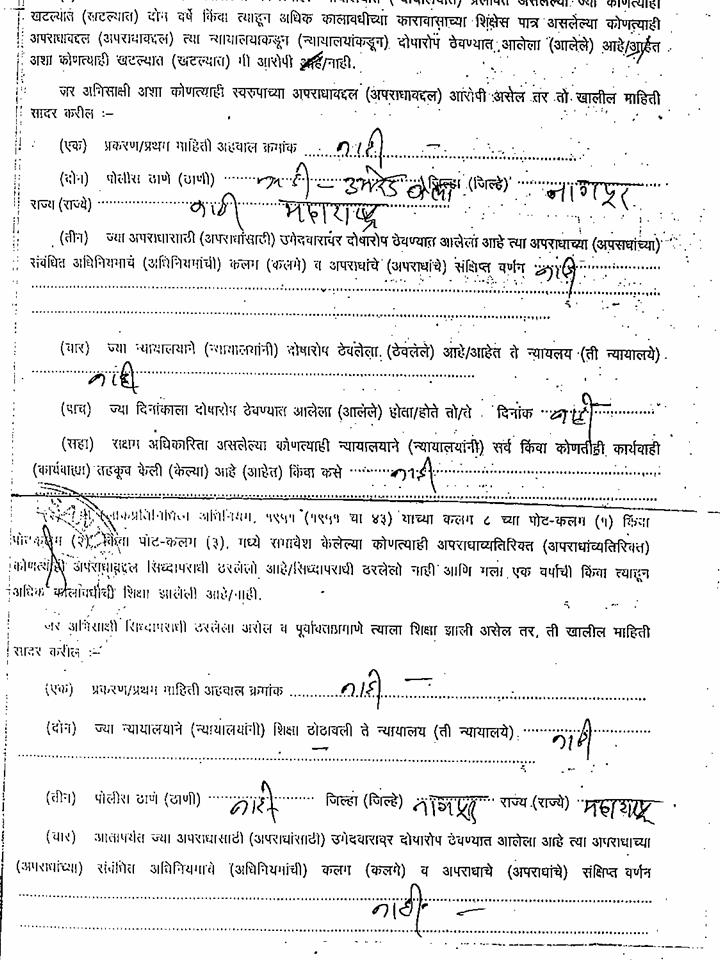 खटल्यात (खटल्यात) दोन वर्षे किंवा त्याहून अधिक कालावधीच्या कारावासाच्या शिक्षेस पात्र असलेल्या कोणत्याही
अपराधाबद्दल (अपराधाबद्दल) त्या न्यायालयाकडून (न्यायालयांकडून) दोषारोप ठेवण्यात आलेला (आलेले) आहे/आहेत
अशा कोणत्याही खटल्यात (खटल्यात) मी आरोपी आहे/नाही.
जर अभिसाक्षी अशा कोणत्याही स्वरुपाच्या अपराधाबद्दल (अपराधाबद्दल) आरोपी असेल तर तो खालील माहिती
सादर करील :–
(एक) प्रकरण/प्रथम माहिती अहवाल क्रमांक नाही –
(दोन) पोलीस ठाणे (ठाणी) नाही – उमरेड जिल्हा (जिल्हे) नागपूर
राज्य (राज्ये) नाही महाराष्ट्र
(तीन) ज्या अपराधासाठी (अपराधांसाठी) उमेदवारावर दोषारोप ठेवण्यात आलेला आहे त्या अपराधाच्या (अपराधांच्या)
संबंधित अधिनियमाचे (अधिनियमांची) कलम (कलमे) व अपराधांचे (अपराधांचे) संक्षिप्त वर्णन नाही
(चार) ज्या न्यायालयाने (न्यायालयांनी) दोषारोप ठेवलेला (ठेवलेले) आहे/आहेत ते न्यायलय (ती न्यायालये)
नाही
(पाच) ज्या दिनांकाला दोषारोप ठेवण्यात आलेला (आलेले) होता/होते तो/ते दिनांक नाही
(सहा) सक्षम अधिकारिता असलेल्या कोणत्याही न्यायालयाने (न्यायालयांनी) सर्व किंवा कोणतीही कार्यवाही
(कार्यवाह्या) तहकूब केली (केल्या) आहे (आहेत) किंवा कसे नाही
लोकप्रतिनिधित्व अधिनियम, १९५१ (१९५१ चा ४३) याच्या कलम ८ च्या पोट-कलम (१) किंवा
पोट-कलम (२), किंवा पोट-कलम (३), मध्ये समावेश केलेल्या कोणत्याही अपराधाव्यतिरिक्त (अपराधांव्यतिरिक्त)
कोणत्याही अपराधाबद्दल सिध्दापराधी ठरलेलो आहे/सिध्दापराधी ठरलेलो नाही आणि मला एक वर्षाची किंवा त्याहून
अधिक कालावधीची शिक्षा झालेली आहे/नाही.
जर अभिसाक्षी सिध्दापराधी ठरलेला असेल व पूर्वोक्ताप्रमाणे त्याला शिक्षा झाली असेल तर, ती खालील माहिती
सादर करील :–
(एक) प्रकरण/प्रथम माहिती अहवाल क्रमांक नाही –
(दोन) ज्या न्यायालयाने (न्यायालयांनी) शिक्षा ठोठावली ते न्यायालय (ती न्यायालये) नाही
–
(तीन) पोलीस ठाणे (ठाणी) नाही जिल्हा (जिल्हे) नागपूर राज्य (राज्ये) महाराष्ट्र
(चार) आतापर्यंत ज्या अपराधासाठी (अपराधांसाठी) उमेदवारावर दोषारोप ठेवण्यात आलेला आहे त्या अपराधाच्या
(अपराधांच्या) संबंधित अधिनियमाचे (अधिनियमांची) कलम (कलमे) व अपराधाचे (अपराधांचे) संक्षिप्त वर्णन
नाही –